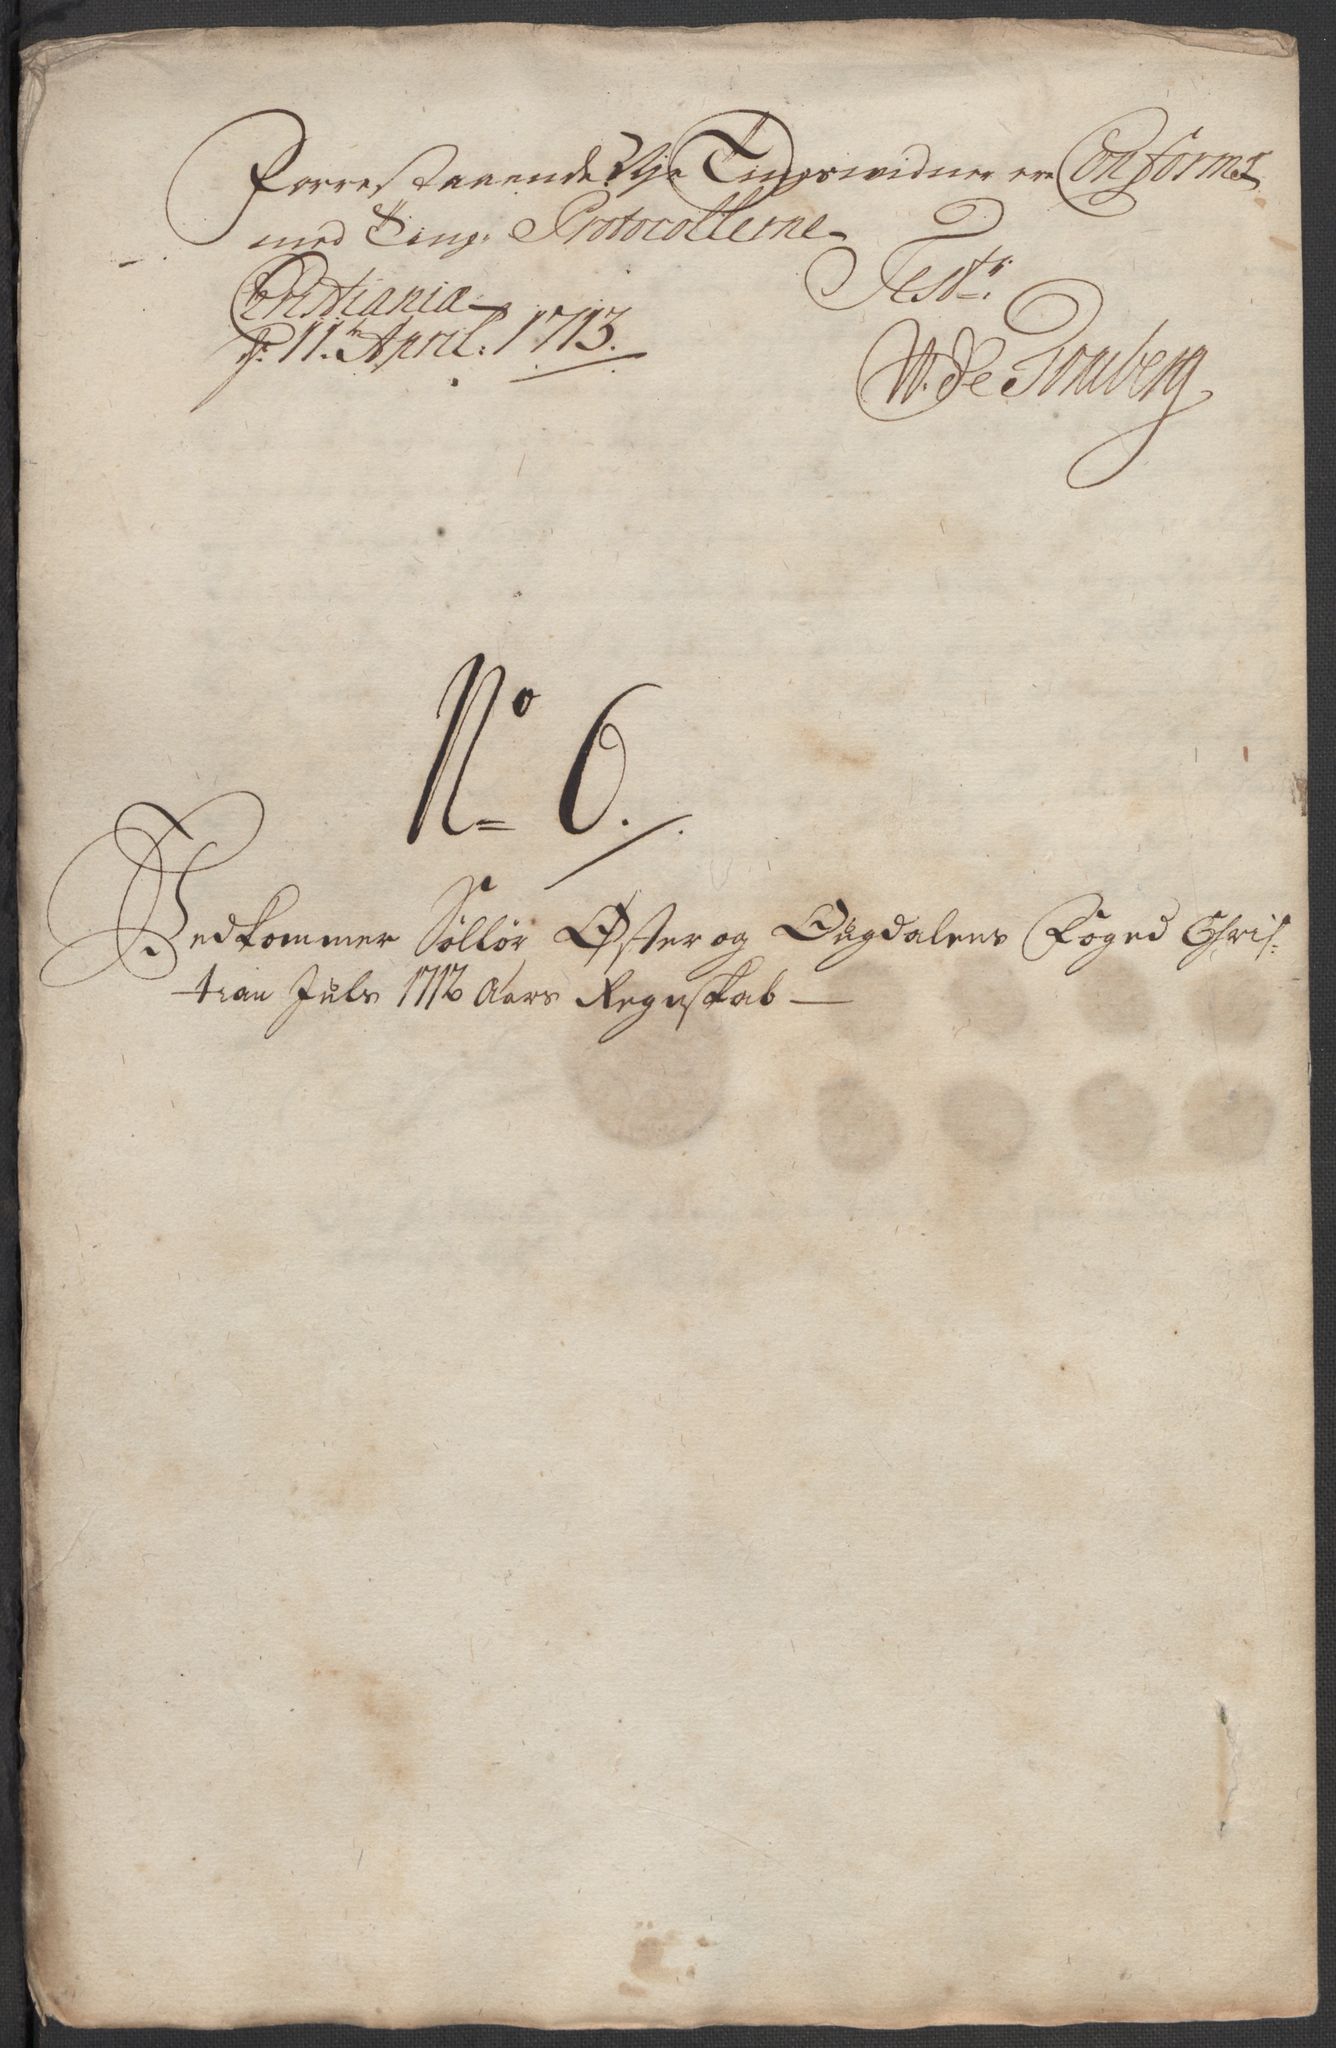 Forrestaaende Tingswidner ere Conforme
med Ting: Protocollerne
Testr:
Christiania
d: 11.te April: 1713.
W. de Tonsberg
No 6.
Vedkommer Sollør Øster og Ougdalens Foged Chris-
tian Juls 1712 Aars Regnskab